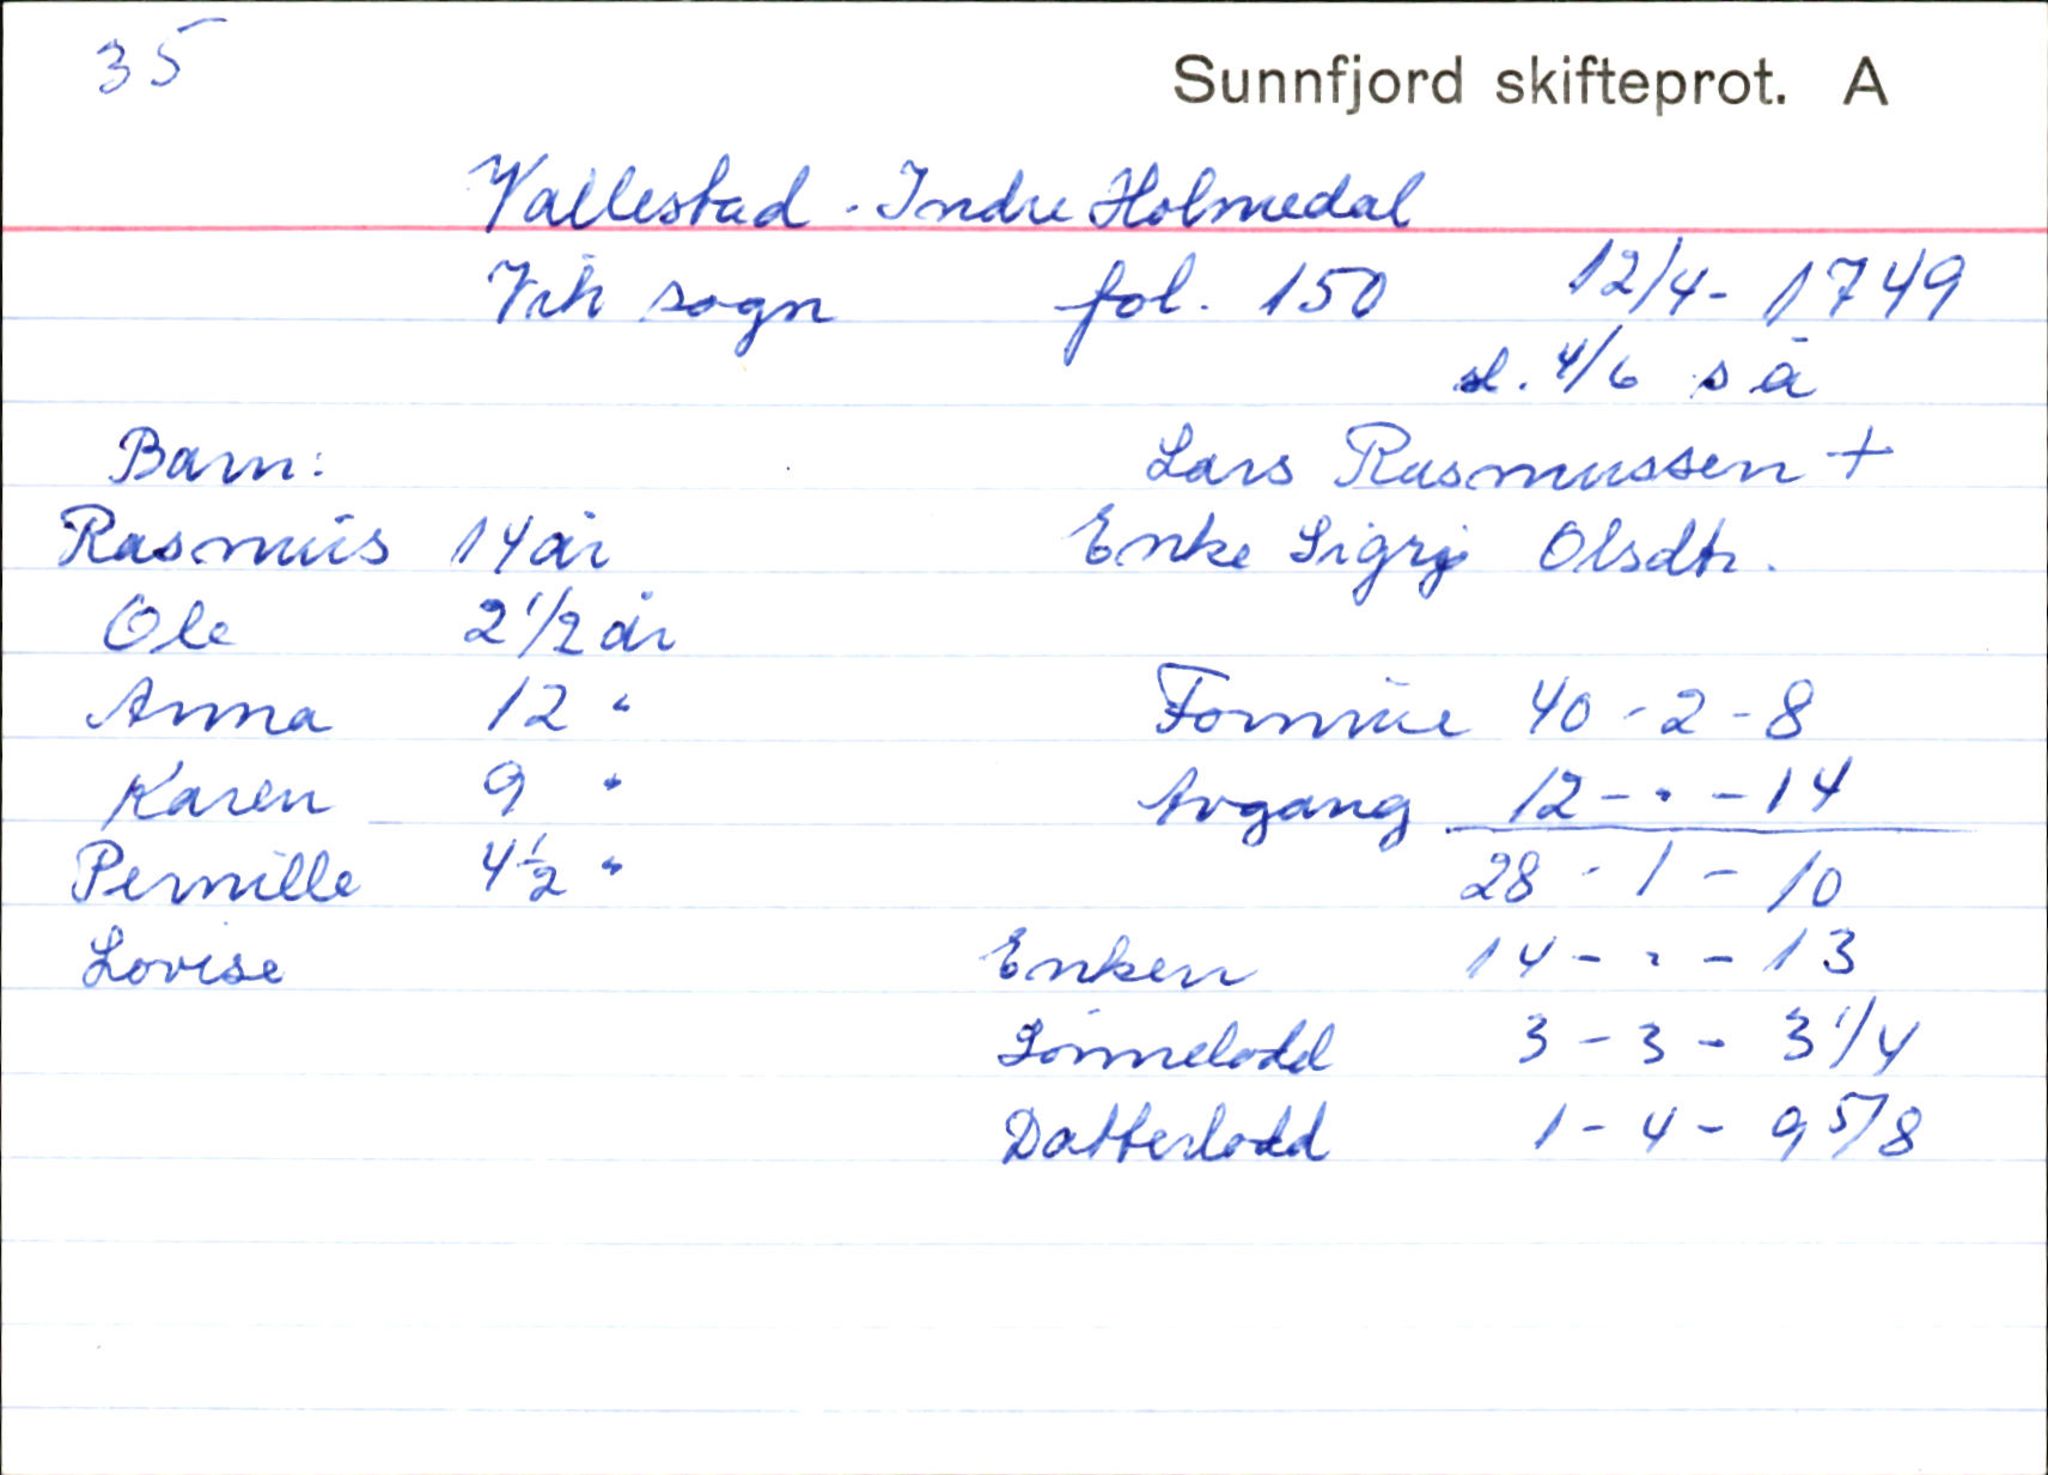 35
Sunnfjord skifteprot. A
Vallestad - Indre Holmedal
Vik sogn fol. 150 12/4 - 1749
sl. 4/6 s å
Barn:
Lars Rasmussen +
Rasmus 14 år
Enke Sigrj Olsdtr.
Ole 2 1/2 år
Anna 12 "
Formue 40 - 2 - 8
Karen 9 "
Avgang 12 - . - 14
Pernille 4 1/2 "
28 - 1 - 10
Lovise
Enken 14 - . - 13
Sønnelodd 3 - 3 - 3 1/4
Datterlodd 1 - 4 - 9 5/8